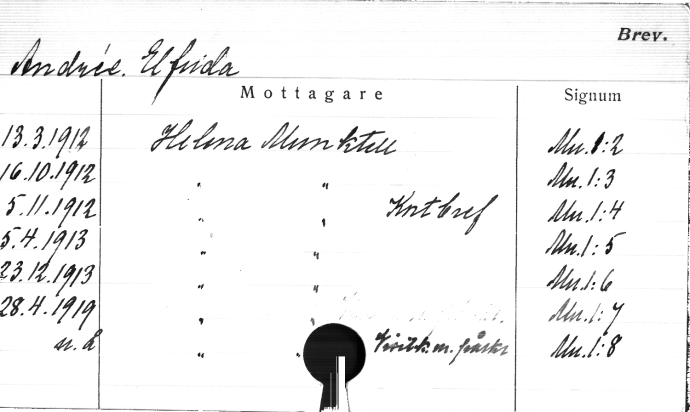 Brev.
Andrée. Elfrida
Mottagare Signum
13.3.1912 Helena Munktell Mu. 1:2
16.10.1912 " " Mu. 1:3
5.11.1912 " " Kortbref Mu. 1:4
5.4.1913 " " Mu. 1:5
23.12.1913 " " Mu. 1:6
28.4.1919 " " Mu. 1:7
u. å " " Mu. 1:8